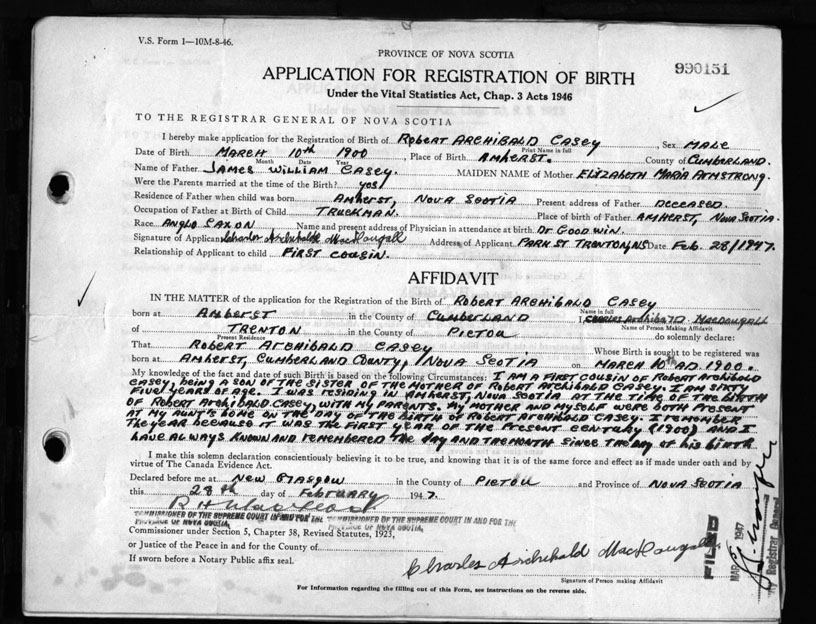 V.S. Form 1—10M-8-46.
PROVINCE OF NOVA SCOTIA
990151
APPLICATION FOR REGISTRATION OF BIRTH
Under the Vital Statistics Act, Chap. 3 Acts 1946
TO THE REGISTRAR GENERAL OF NOVA SCOTIA
I hereby make application for the Registration of Birth of ROBERT ARCHIBALD CASEY, Sex MALE
Print Name in full
Date of Birth MARCH 10th 1900, Place of Birth AMHERST. County of CUMBERLAND.
Month Date Year
Name of Father JAMES WILLIAM CASEY. MAIDEN NAME of Mother ELIZABETH MARIA ARMSTRONG.
Were the Parents married at the time of the Birth? yes
Residence of Father when child was born AMHERST, NOVA SCOTIA Present address of Father DECEASED.
Occupation of Father at Birth of Child TRUCKMAN. Place of birth of Father AMHERST, NOVA SCOTIA.
Race ANGLO SAXON Name and present address of Physician in attendance at birth DR GOODWIN.
Signature of Applicant Charles Archibald MacDougall Address of Applicant PARK ST TRENTON, NS Date Feb. 28/1947.
Relationship of Applicant to child FIRST COUSIN.
AFFIDAVIT
IN THE MATTER of the application for the Registration of the Birth of ROBERT ARCHIBALD CASEY
Name in full
born at AMHERST in the County of CUMBERLAND I, CHARLES ARCHIBALD MACDOUGALL
Name of Person Making Affidavit
of TRENTON in the County of PICTOU do solemnly declare:
Present Residence
That ROBERT ARCHIBALD CASEY Whose Birth is sought to be registered was
born at AMHERST, CUMBERLAND COUNTY, NOVA SCOTIA on MARCH 10th AD. 1900.
My knowledge of the fact and date of such Birth is based on the following Circumstances: I AM A FIRST COUSIN OF ROBERT ARCHIBALD
CASEY, BEING A SON OF THE SISTER OF THE MOTHER OF ROBERT ARCHIBALD CASEY. I AM SIXTY
FIVE YEARS OF AGE. I WAS RESIDING IN AMHERST, NOVA SCOTIA AT THE TIME OF THE BIRTH
OF ROBERT ARCHIBALD CASEY, WITH MY PARENTS. MY MOTHER AND MYSELF WERE BOTH PRESENT
AT MY AUNT'S HOME ON THE DAY OF THE BIRTH OF ROBERT ARCHIBALD CASEY. I REMEMBER
THE YEAR BECAUSE IT WAS THE FIRST YEAR OF THE PRESENT CENTURY (1900) AND I
HAVE ALWAYS KNOWN AND REMEMBERED THE DAY AND THE MONTH SINCE THE DAY OF HIS BIRTH
I make this solemn declaration conscientiously believing it to be true, and knowing that it is of the same force and effect as if made under oath and by
virtue of The Canada Evidence Act.
Declared before me at NEW GLASGOW in the County of PICTOU and Province of NOVA SCOTIA
this 28th day of February 1947.
COMMISSIONER OF THE SUPREME COURT IN AND FOR THE COMMISSIONER OF THE SUPREME COURT IN AND FOR THE
PROVINCE OF NOVA SCOTIA, PROVINCE OF NOVA SCOTIA.
Commissioner under Section 5, Chapter 38, Revised Statutes, 1923,
or Justice of the Peace in and for the County of
If sworn before a Notary Public affix seal.
Charles Archibald MacDougall
Signature of Person making Affidavit
For Information regarding the filling out of this Form, see instructions on the reverse side.
FILED
MAR 1947
Registrar General